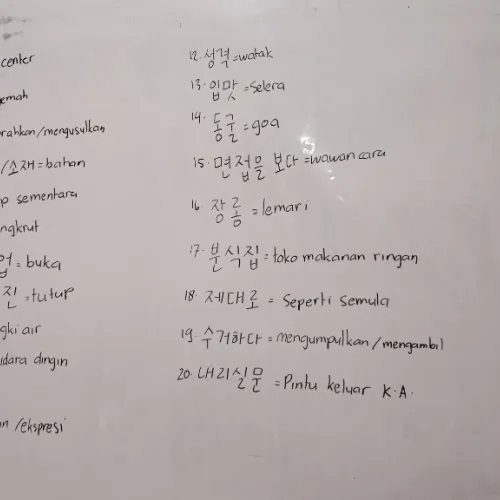 center
emah
rahkan/mengusulkan
/소재=bahan
p sementara
ngkrut
업=buka
진=tutup
gki air
idara dingin
n/ekspresi
12. 성격=watak
13. 입맛=selera
14. 동굴=goa
15. 면접을 보다=wawancara
16 장롱=lemari
17. 분식집=toko makanan ringan
18. 제대로= seperti semula
19. 수거하다=mengumpulkan/mengambil
20. 내리실문 =Pintu keluar K.A.